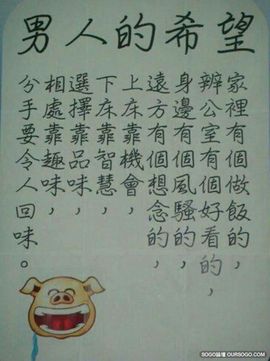 男人的希望
家裡有個做飯的，
辦公室有個好看的，
身邊有個風騷的，
遠方有個想念的，
上床靠機會，
下床靠智慧，
選擇靠品味，
相處靠趣味，
分手要令人回味。
SOGO論壇 OURSOGO.COM